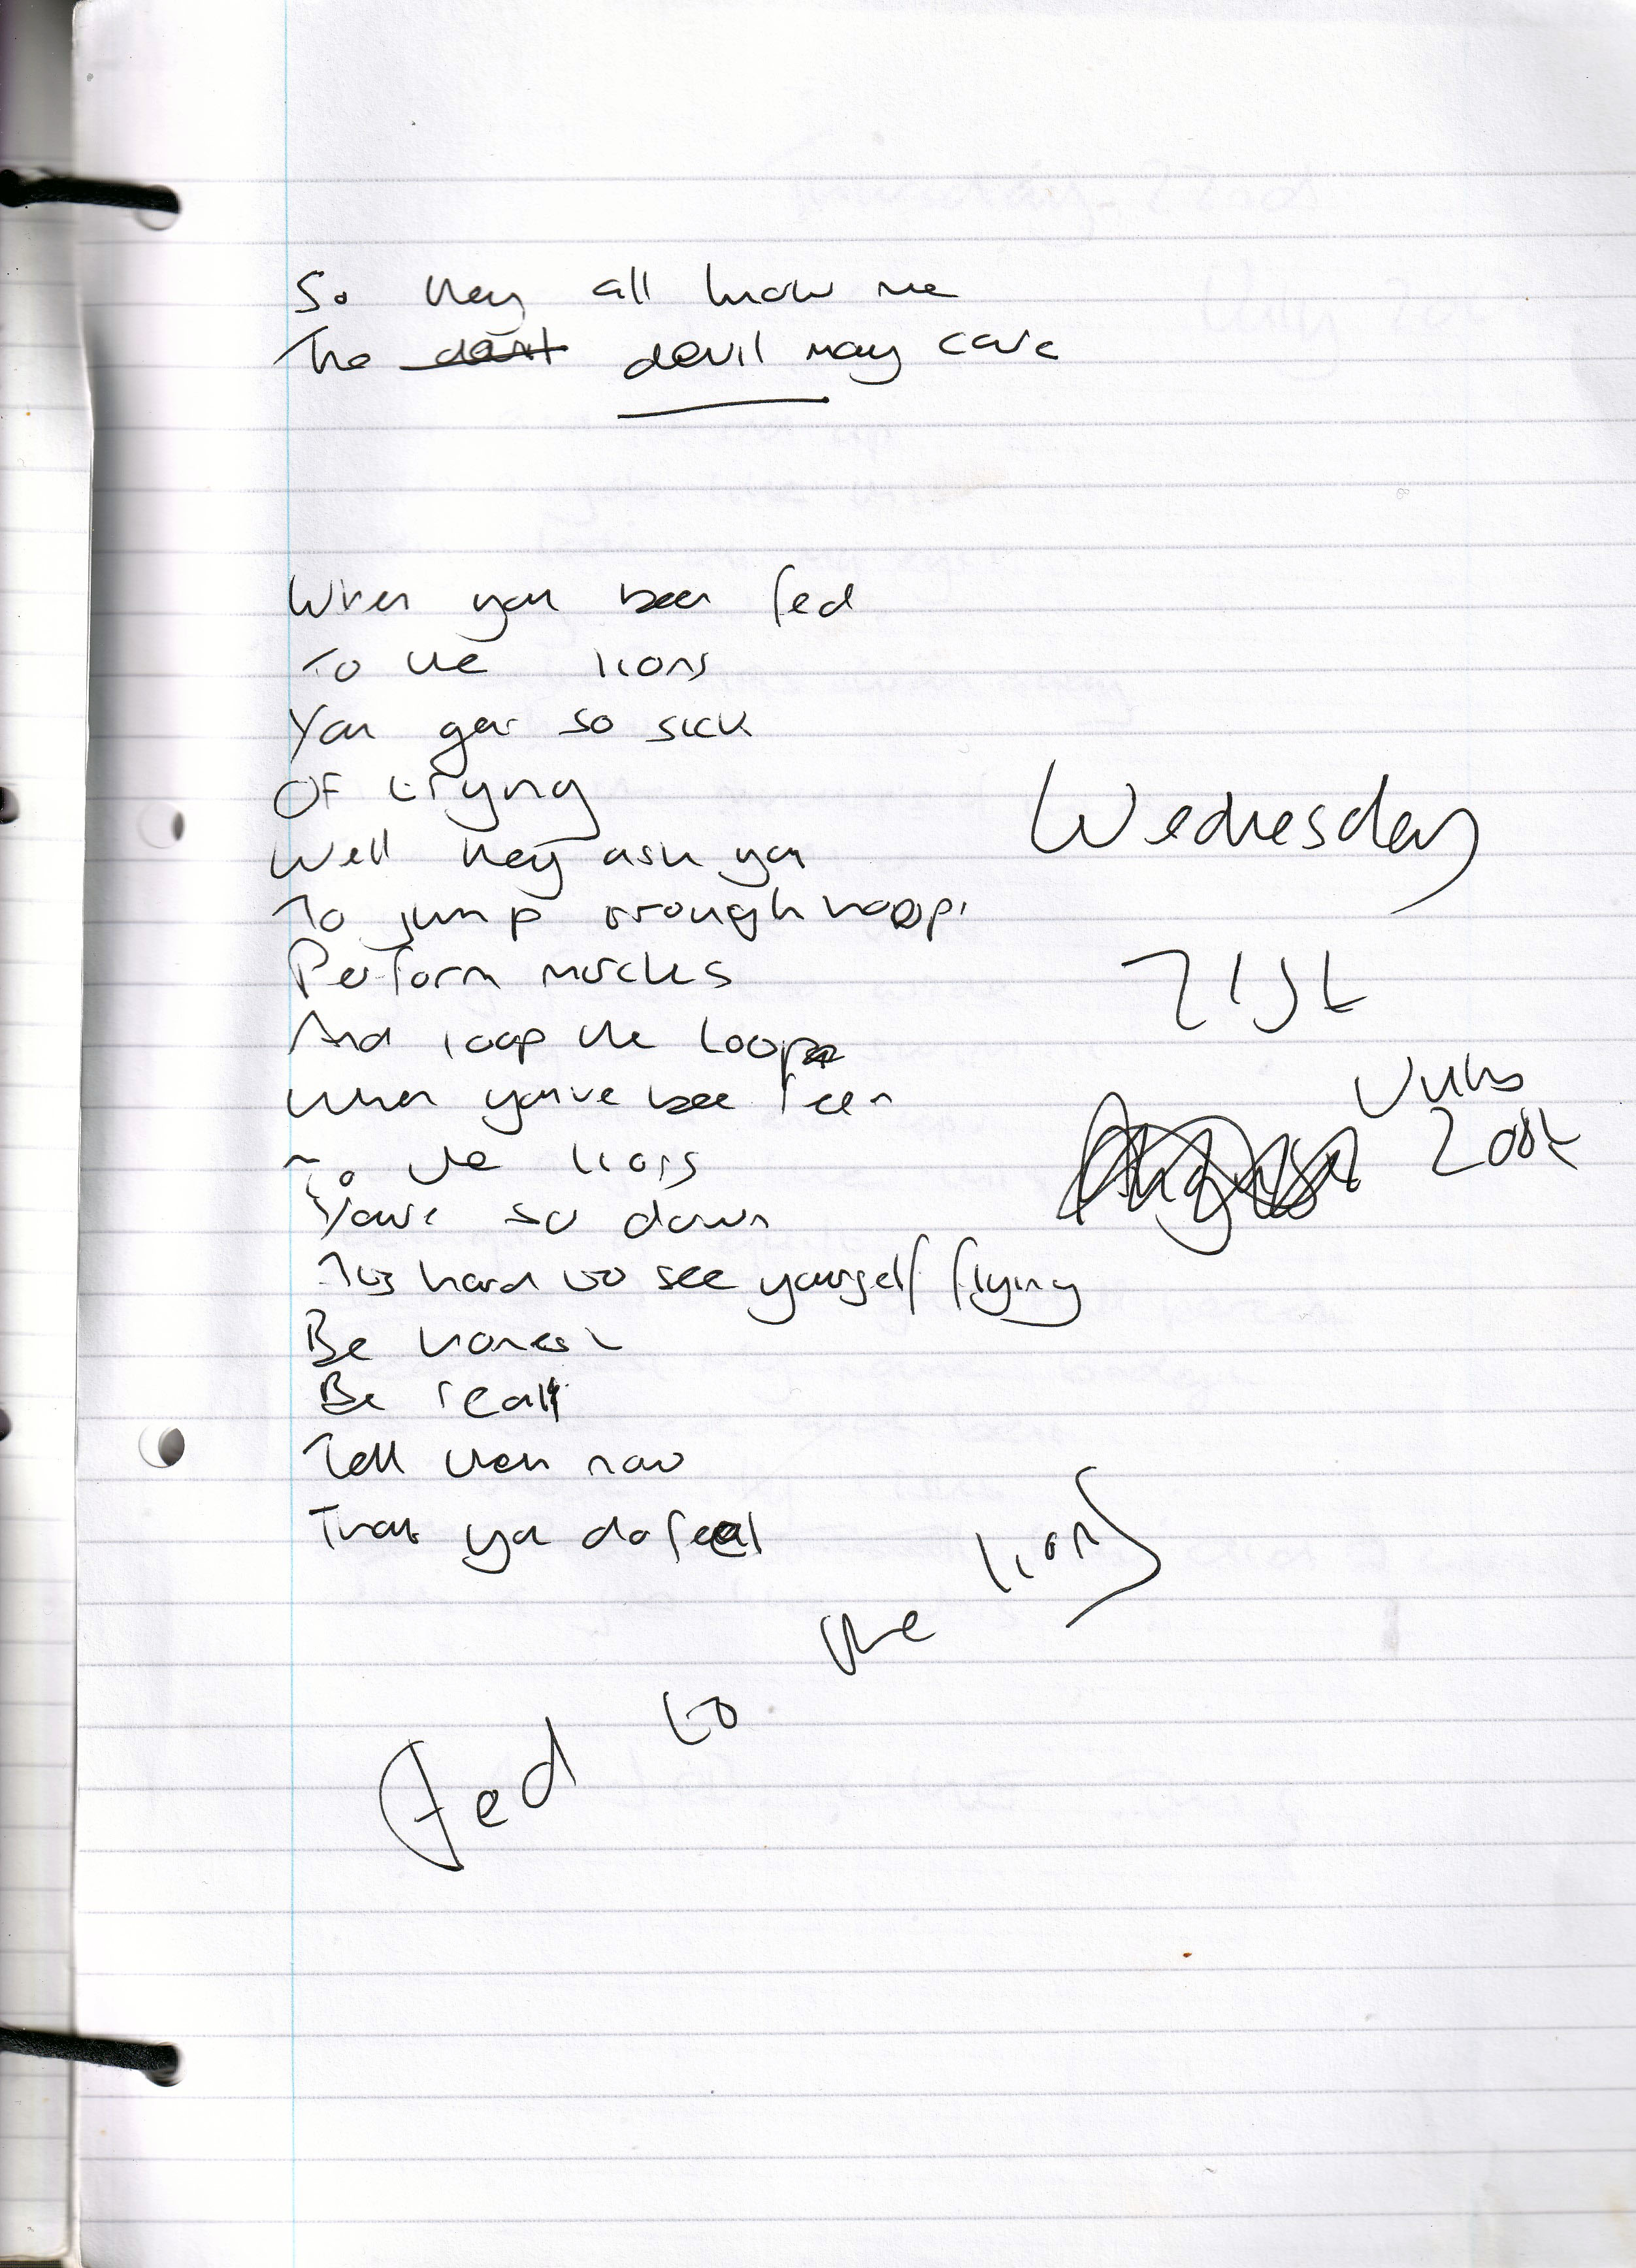 So they all know me
The devil may care
When you been fed
To the lions
You get so sick
Of trying
Well they ask you
To jump through hoops
Perform miracles
And loop the loop
When you've bee feen
To the lions
Your so down
Its hard to see yourself flying
Be honest
Be real
Tell them now
That you do feel
Wednesday
21st
Fed to the lions